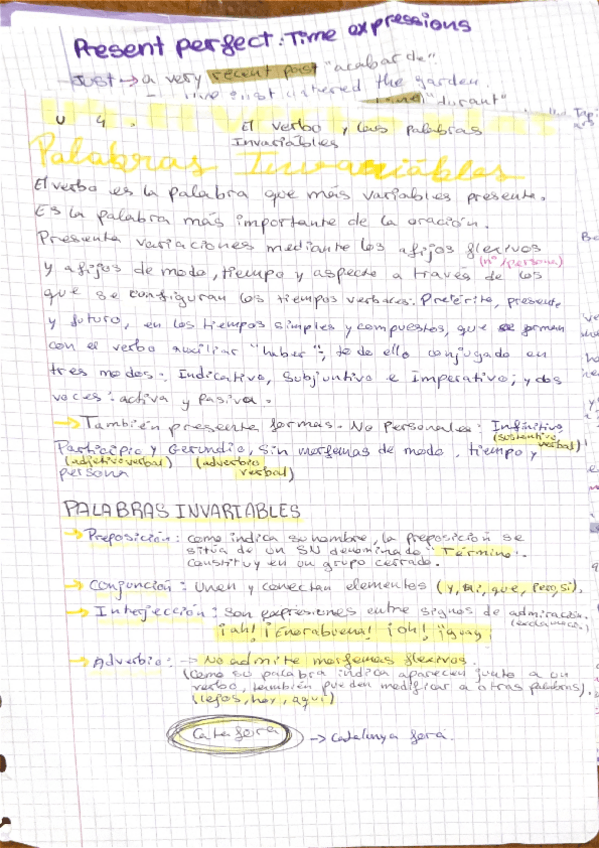 Present perfect: Time expressions
Just → a very recent past "acabar de".
just watered the garden.
"durant"
U 4. El verbo y las palabras
Invariables
Palabras Invariables
El verbo es la palabra que más variables presente.
Es la palabra más importante de la oración.
Presenta variaciones mediante los afijos flexivos
(nº/persona)
y afijos de modo, tiempo y aspecto a través de los
que se configuran los tiempos verbales: Pretérito, presente
y futuro, en los tiempos simples y compuestos, que se forman
con el verbo auxiliar "haber"; todo ello conjugado en
tres modos: Indicativo, Subjuntivo e Imperativo; y dos
voces: activa y pasiva.
→ También presenta formas No Personales: Infinitivo,
(sustantivo verbal)
Participio y Gerundio, sin morfemas de modo, tiempo y
(adjetivo verbal) (adverbio verbal)
persona
PALABRAS INVARIABLES
→ Preposición: como indica su nombre, la preposición se
sitúa de un SN denominado "Término".
Constituyen un grupo cerrado.
→ Conjunción: Unen y conectan elementos (y, ni, que, pero, si).
→ Interjección: Son expresiones entre signos de admiración.
(exclamación)
¡ah! ¡Enorabuena! ¡oh! ¡guay
→ Adverbio: → No admite morfemas flexivos.
(Como su palabra indica aparecen junto a un
verbo, también pueden modificar a otras palabras).
(lejos, hoy, aquí)
Catafora → Catalunya fora.